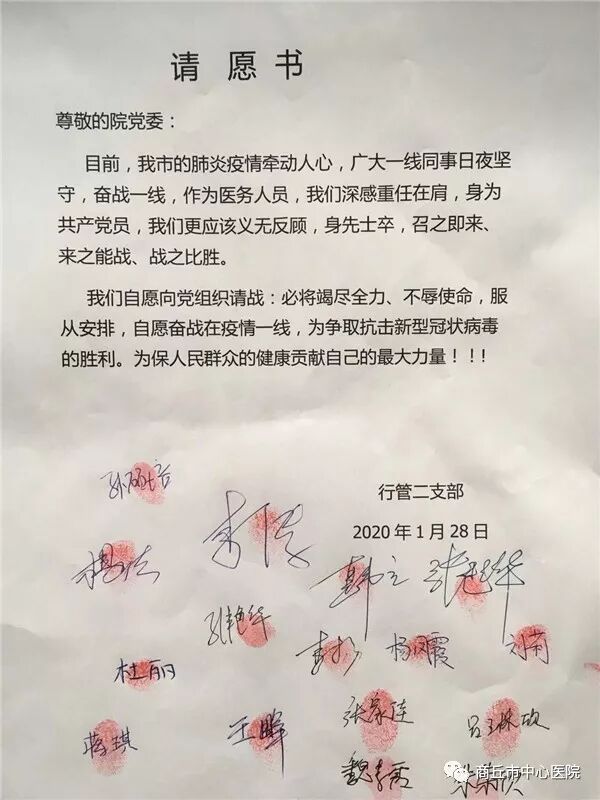 请愿书
尊敬的院党委：
目前，我市的肺炎疫情牵动人心，广大一线同事日夜坚
守，奋战一线，作为医务人员，我们深感重任在肩，身为
共产党员，我们更应该义无反顾，身先士卒，召之即来、
来之能战、战之比胜。
我们自愿向党组织请战：必将竭尽全力、不辱使命，服
从安排，自愿奋战在疫情一线，为争取抗击新型冠状病毒
的胜利。为保人民群众的健康贡献自己的最大力量！！！
行管二支部
2020年1月28日
杜丽
杨凤霞
刘莉
蒋琪
王晖
张家佳
商丘市中心医院